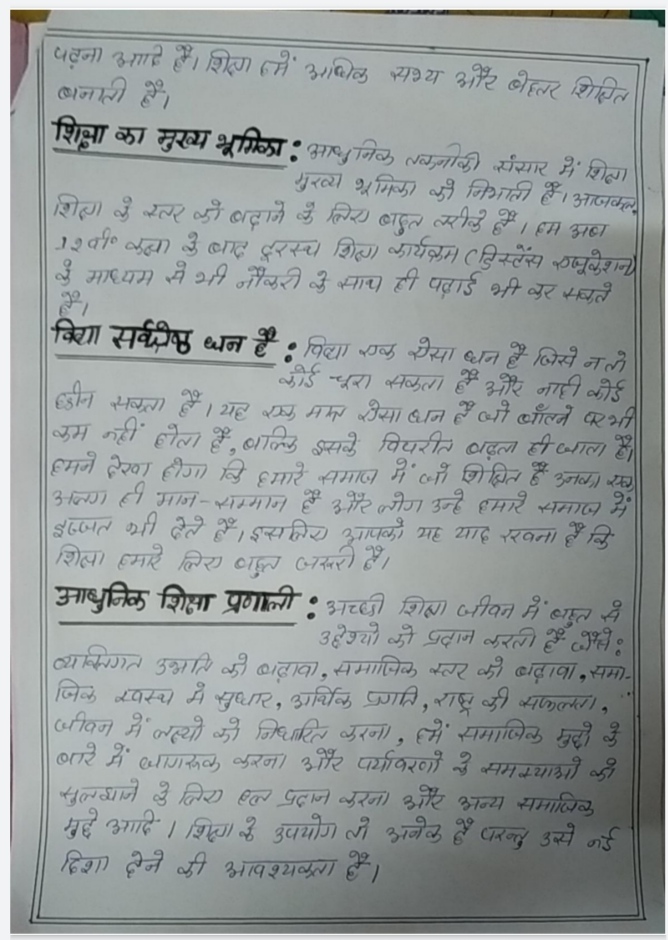 पढ़ना आदि है। शिक्षा हमें अधिक सभ्य और बेहतर शिक्षित
बनाती है।
शिक्षा का मुख्य भूमिका : आधुनिक तकनीकी संसार में शिक्षा
मुख्य भूमिका को निभाती है। आजकल,
शिक्षा के स्तर को बढ़ाने के लिए बहुत तरीके हैं। हम अब
12वीं० कक्षा के बाद दूरस्थ शिक्षा कार्यक्रम (डिस्टेंस एजुकेशन)
के माध्यम से भी नौकरी के साथ ही पढ़ाई भी कर सकते
हैं।
विद्या सर्वश्रेष्ठ धन है : विद्या एक ऐसा धन है जिसे न तो
कोई चुरा सकता है और नाही कोई
छीन सकता है। यह एक मात्र ऐसा धन है जो बाँटने पर भी
कम नहीं होता है, बल्कि इसके विपरीत बढ़ता ही जाता है।
हमने देखा होगा कि हमारे समाज में जो शिक्षित है उनका एक
अलग ही मान-सम्मान है और लोग उन्हे हमारे समाज में
इज्जत भी देते है। इसलिए आपको यह याद रखना है कि
शिक्षा हमारे लिए बहुत जरूरी है।
आधुनिक शिक्षा प्रणाली : अच्छी शिक्षा जीवन में बहुत से
उद्देश्यो को प्रदान करती है जैसे:
व्यक्तिगत उन्नति को बढ़ावा, समाजिक स्तर को बढ़ावा, समा-
जिक स्वस्थ में सुधार, आर्थिक प्रगति, राष्ट्र की सफलता,
जीवन में लक्ष्यों को निर्धारित करना, हमें समाजिक मुद्दो के
बारे में जागरूक करना और पर्यावरणो के समस्याओं को
सुलझाने के लिए हल प्रदान करना और अन्य समाजिक
मुद्दे आदि। शिक्षा के उपयोग तो अनेक है परन्तु उसे नई
दिशा देने की आवश्यकता है।